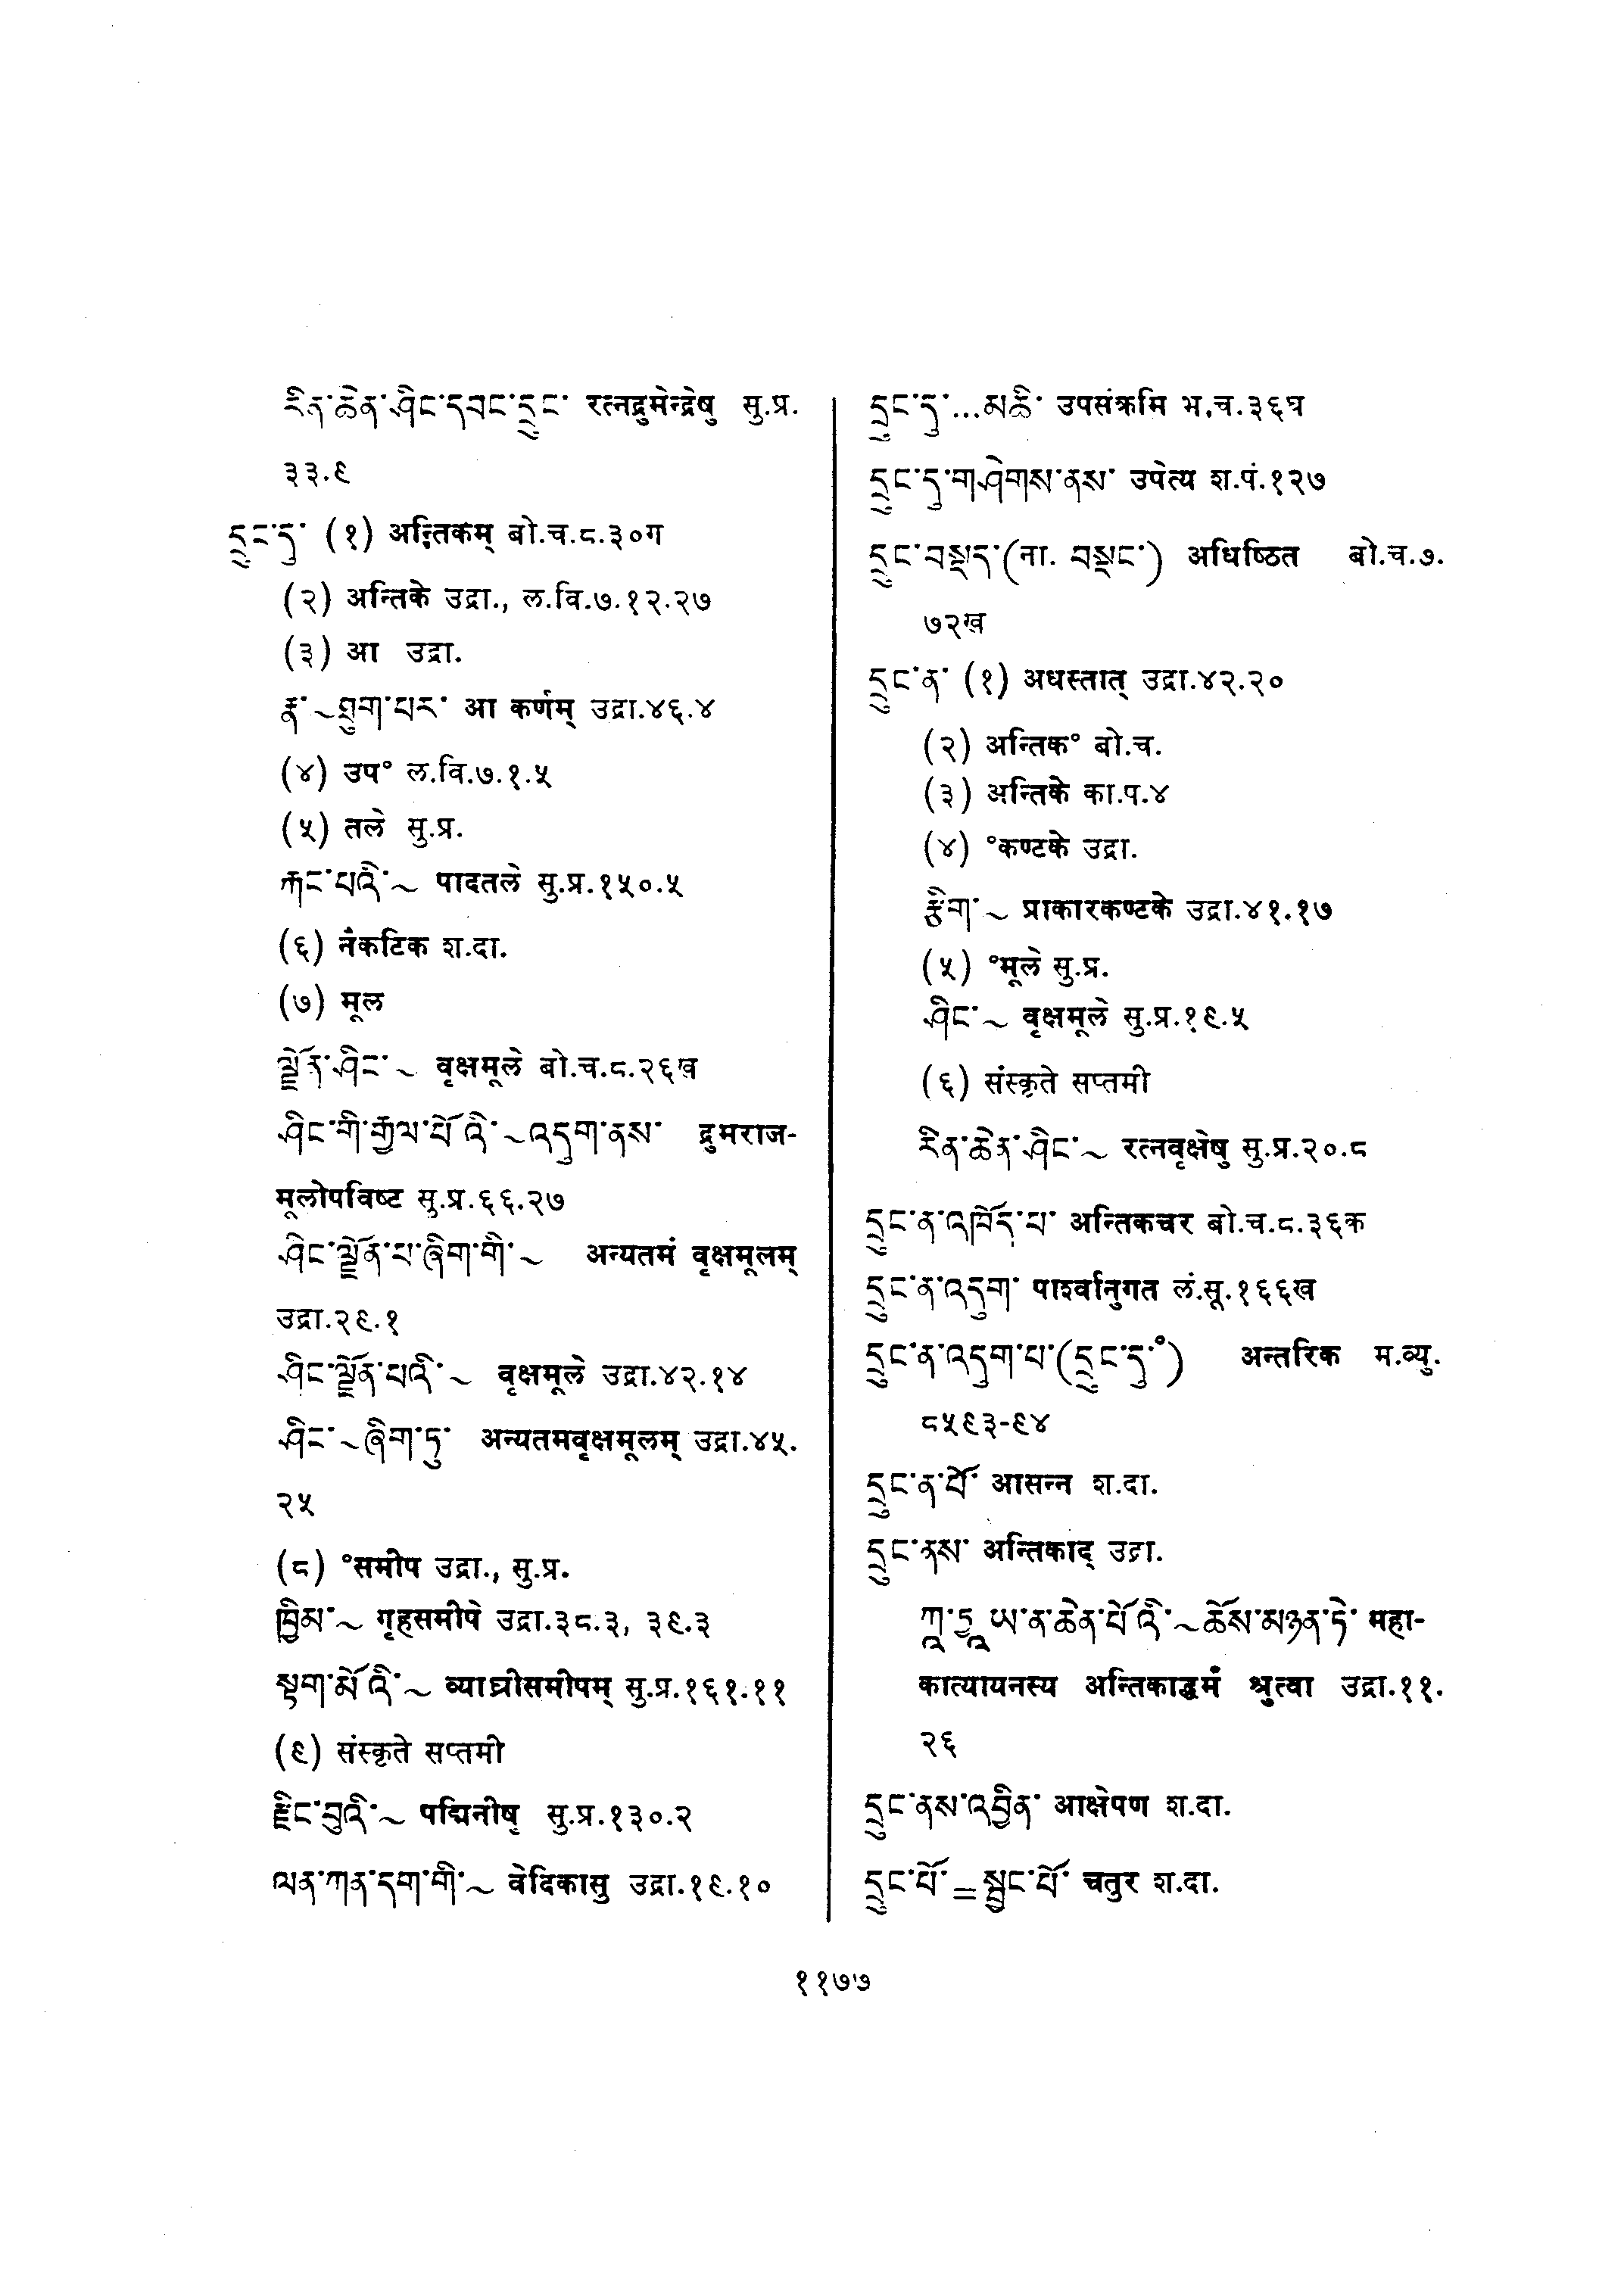 རིན་ཆེན་ཤིང་དབང་དྲུང་ रत्नद्रुमेन्द्रेषु सु.प्र.
३३.९
དྲུང་དུ་ (१) अन्तिकम् बो.च.८.३०ग
(२) अन्तिके उद्रा., ल.वि.७.१२.२७
(३) आ उद्रा.
རྣ་~ཐུག་པར་ आ कर्णम् उद्रा.४६.४
(४) उप° ल.वि.७.१.५
(५) तले सु.प्र.
རྐང་པའི་~ पादतले सु.प्र.१५०.५
(६) नंकटिक श.दा.
(७) मूल
ལྗོན་ཤིང་~ वृक्षमूले बो.च.८.२६ख
ཤིང་གི་རྒྱལ་པོའི་~འདུག་ནས་ द्रुमराज-
मूलोपविष्ट सु.प्र.६६.२७
ཤིང་ལྗོན་པ་ཞིག་གི་~ अन्यतमं वृक्षमूलम्
उद्रा.२९.१
ཤིང་ལྗོན་པའི་~ वृक्षमूले उद्रा.४२.१४
ཤིང་~ཞིག་ཏུ་ अन्यतमवृक्षमूलम् उद्रा.४५.
२५
(८) °समीप उद्रा., सु.प्र.
ཁྱིམ་~ गृहसमीपे उद्रा.३८.३, ३९.३
སྟག་མོའི་~ व्याघ्रीसमीपम् सु.प्र.१६१.११
(९) संस्कृते सप्तमी
རྫིང་བུའི་~ पद्मिनीषु सु.प्र.१३०.२
ལན་ཀན་དག་གི་~ वेदिकासु उद्रा.१९.१०
དྲུང་དུ་...མཆི་ उपसंक्रमि भ.च.३६घ
དྲུང་དུ་གཤེགས་ནས་ उपेत्य श.पं.१२७
དྲུང་བསྡད་(ना. བསྡང་) अधिष्ठित बो.च.७.
७२ख
དྲུང་ན་ (१) अधस्तात् उद्रा.४२.२०
(२) अन्तिक° बो.च.
(३) अन्तिके का.प.४
(४) °कण्टके उद्रा.
རྩིག་~ प्राकारकण्टके उद्रा.४१.१७
(५) °मूले सु.प्र.
ཤིང་~ वृक्षमूले सु.प्र.१९.५
(६) संस्कृते सप्तमी
རིན་ཆེན་ཤིང་~ रत्नवृक्षेषु सु.प्र.२०.८
དྲུང་ན་འཁོད་པ་ अन्तिकचर बो.च.८.३६क
དྲུང་ན་འདུག་ पार्श्वानुगत लं.सू.१६६ख
དྲུང་ན་འདུག་པ་(དྲུང་དུ་°) अन्तरिक म.व्यु.
८५९३-९४
དྲུང་ན་པོ་ आसन्न श.दा.
དྲུང་ནས་ अन्तिकाद् उद्रा.
ཀཱ་ཏྱཱ་ཡ་ན་ཆེན་པོའི་~ཆོས་མཉན་ཏེ་ महा-
कात्यायनस्य अन्तिकाद्धर्मं श्रुत्वा उद्रा.११.
२६
དྲུང་ནས་འབྱིན་ आक्षेपण श.दा.
དྲུང་པོ་=སྦྱང་པོ་ चतुर श.दा.
११७७